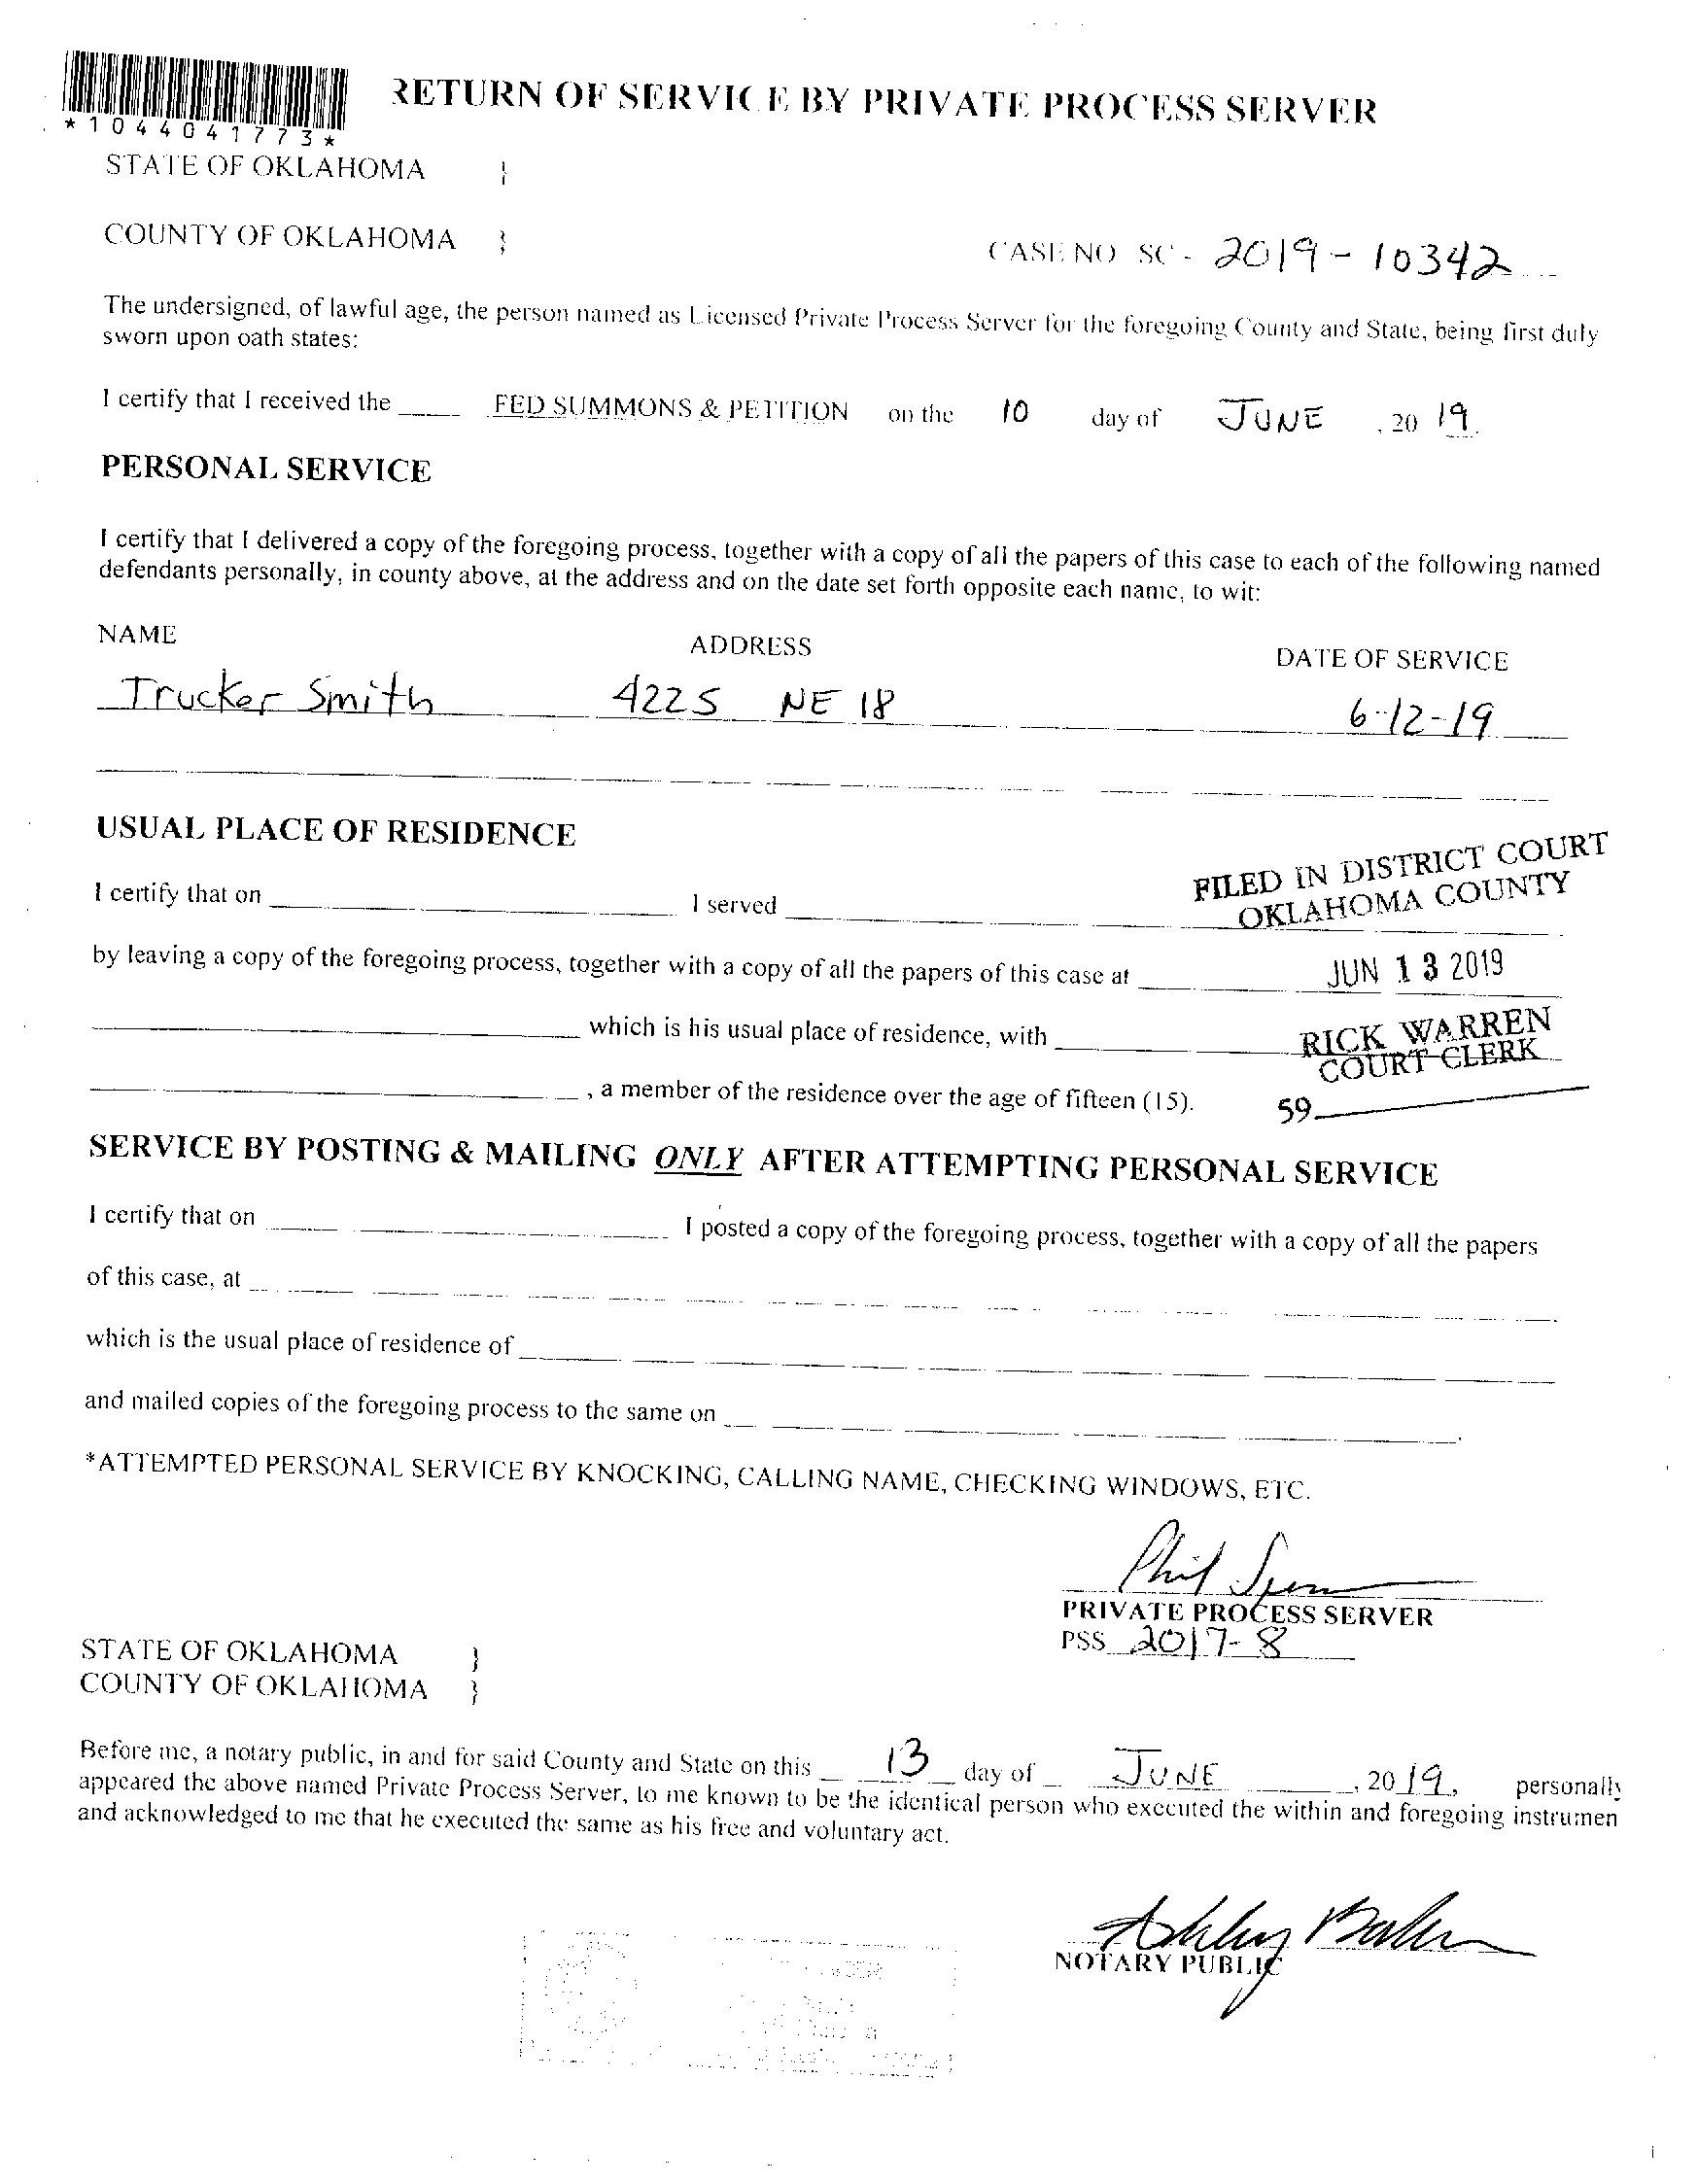 RETURN OF SERVICE BY PRIVATE PROCESS SERVER
*1044041773*
STATE OF OKLAHOMA }
COUNTY OF OKLAHOMA }
CASE NO SC - 2019-10342
The undersigned, of lawful age, the person named as Licensed Private Process Server for the foregoing County and State, being first duly
sworn upon oath states:
I certify that I received the FED SUMMONS & PETITION on the 10 day of JUNE , 20 19.
PERSONAL SERVICE
I certify that I delivered a copy of the foregoing process, together with a copy of all the papers of this case to each of the following named
defendants personally, in county above, at the address and on the date set forth opposite each name, to wit:
NAME ADDRESS DATE OF SERVICE
Trucker Smith 4225 NE 18 6-12-19
USUAL PLACE OF RESIDENCE
FILED IN DISTRICT COURT
OKLAHOMA COUNTY
I certify that on I served
by leaving a copy of the foregoing process, together with a copy of all the papers of this case at
JUN 13 2019
which is his usual place of residence, with
RICK WARREN
COURT CLERK
, a member of the residence over the age of fifteen (15).
59
SERVICE BY POSTING & MAILING ONLY AFTER ATTEMPTING PERSONAL SERVICE
I certify that on I posted a copy of the foregoing process, together with a copy of all the papers
of this case, at
which is the usual place of residence of
and mailed copies of the foregoing process to the same on .
*ATTEMPTED PERSONAL SERVICE BY KNOCKING, CALLING NAME, CHECKING WINDOWS, ETC.
Phil
PRIVATE PROCESS SERVER
PSS 2017-8
STATE OF OKLAHOMA }
COUNTY OF OKLAHOMA }
Before me, a notary public, in and for said County and State on this 13 day of JUNE , 20 19, personally
appeared the above named Private Process Server, to me known to be the identical person who executed the within and foregoing instrumen
and acknowledged to me that he executed the same as his free and voluntary act.
Ashley Baker
NOTARY PUBLIC